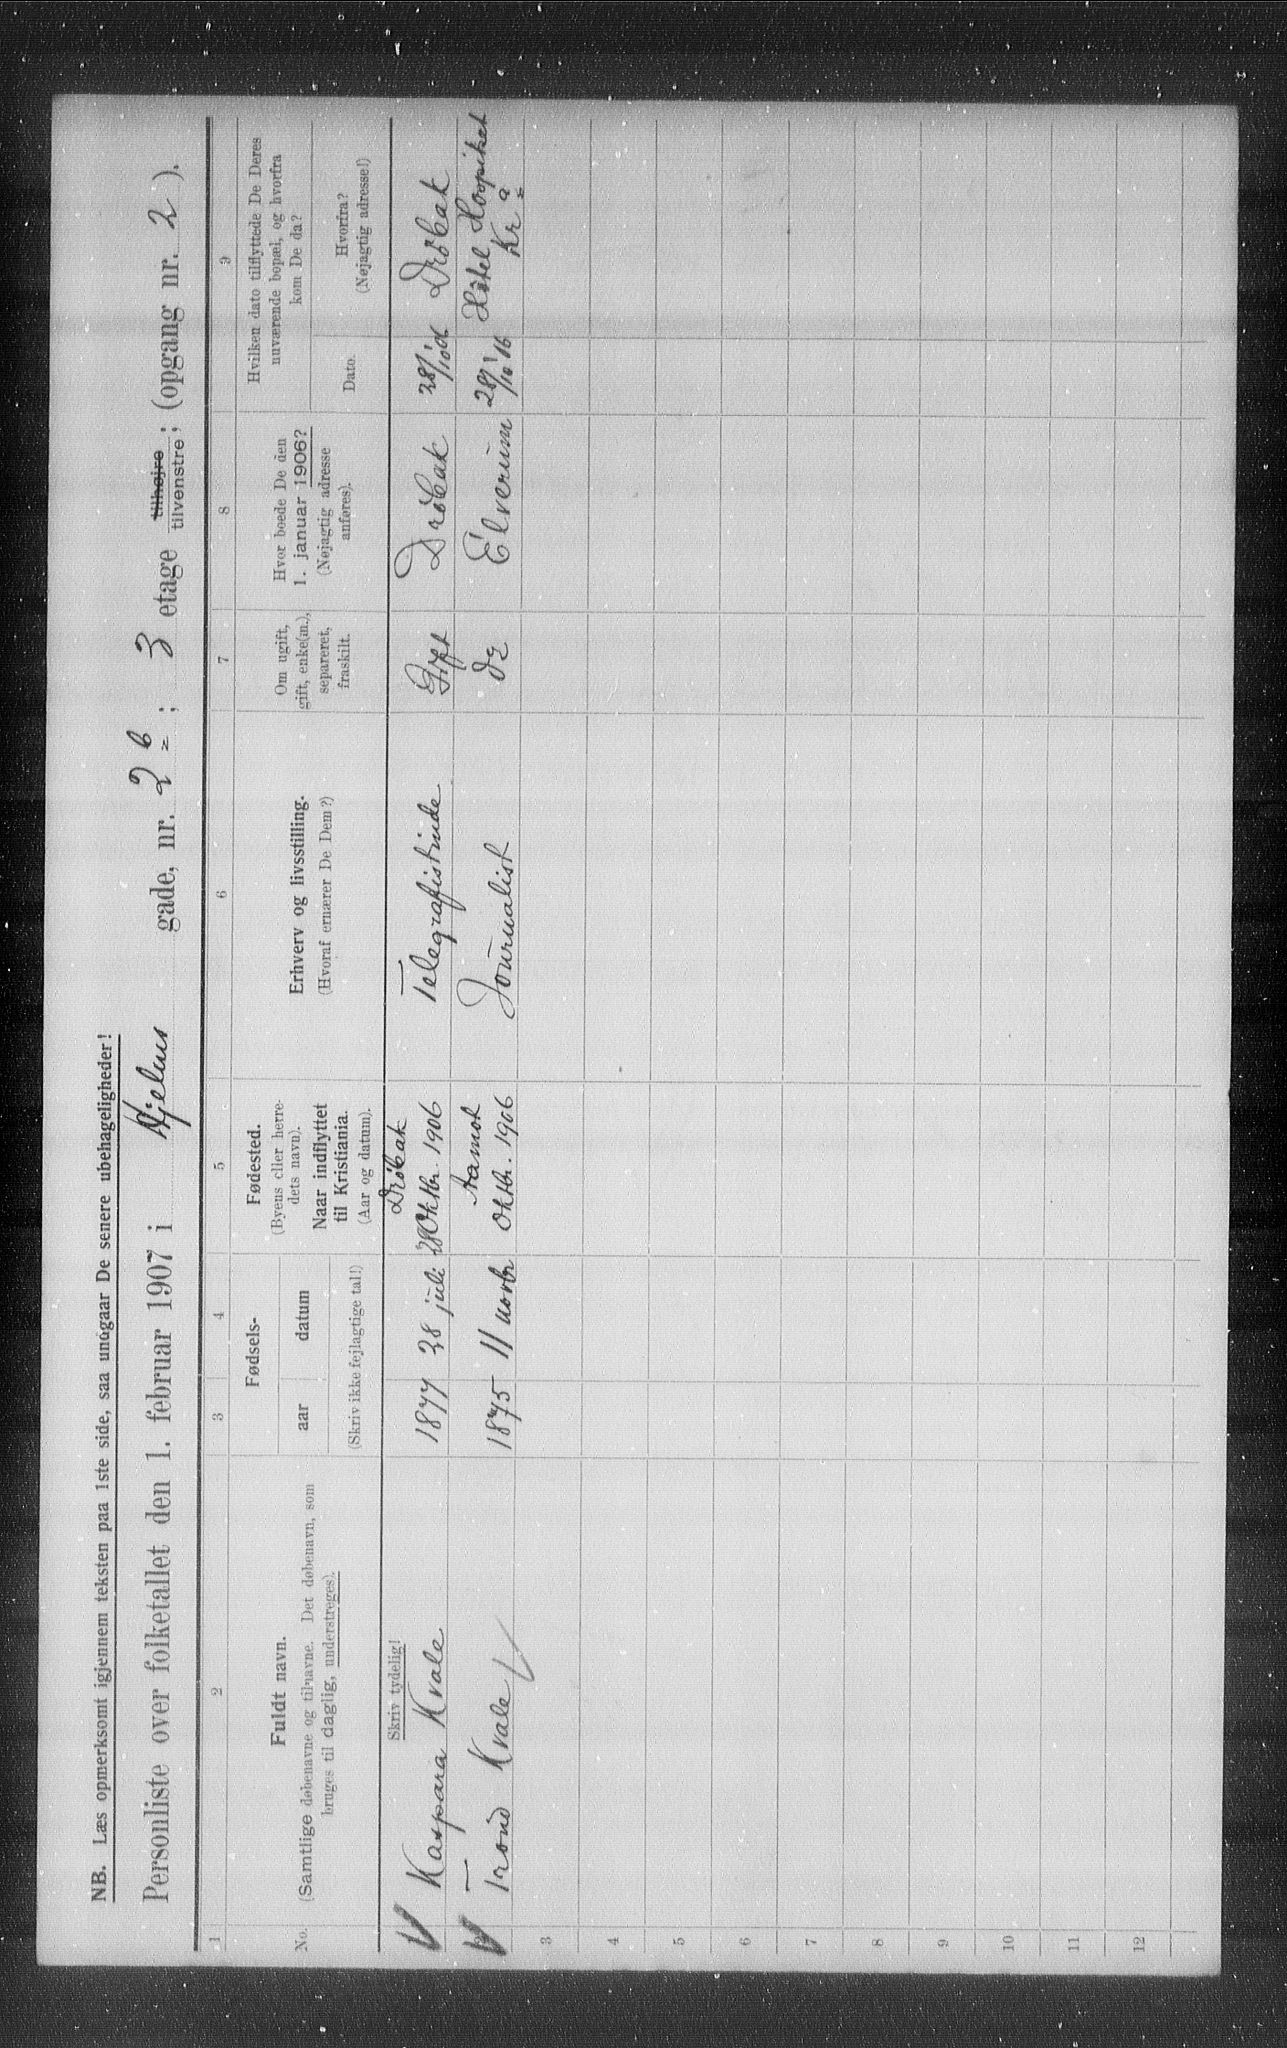 NB. Læs opmerksomt igjennem teksten paa 1ste side, saa undgaar De senere ubehageligheder!
Personliste over folketallet den 1. februar 1907 i Hjelms gade, nr. 2 b; 3 etage tilhøjre tilvenstre; (opgang nr. 2).
1 2 3 4 5 6 7 8 9
No.
Fuldt navn.
(Samtlige døbenavne og tilnavne. Det døbenavn, som
bruges til daglig, understreges).
Fødsels-
aar datum
(Skriv ikke fejlagtige tal!)
Fødested.
(Byens eller herre-
dets navn).
Naar indflyttet
til Kristiania.
(Aar og datum).
Erhverv og livsstilling.
(Hvoraf ernærer De Dem?)
Om ugift,
gift, enke(m.),
separeret,
fraskilt.
Hvor boede De den
1. januar 1906?
(Nøjagtig adresse
anføres).
Hvilken dato tilflyttede De Deres
nuværende bopæl, og hvorfra
kom De da?
Dato.
Hvorfra?
(Nøjagtig adresse!)
Skriv tydelig!
Kaspara Kvale 1877 28 juli Drøbak 28 Oktbr. 1906 Telegrafistinde Gift Drøbak 28/10 06 Drøbak
Trond Kvale 1875 11 novbr Aamot Oktbr. 1906 Journalist do Elverum 28/10 '06 Hotel Hospitset Kr a
3
4
5
6
7
8
9
10
11
12